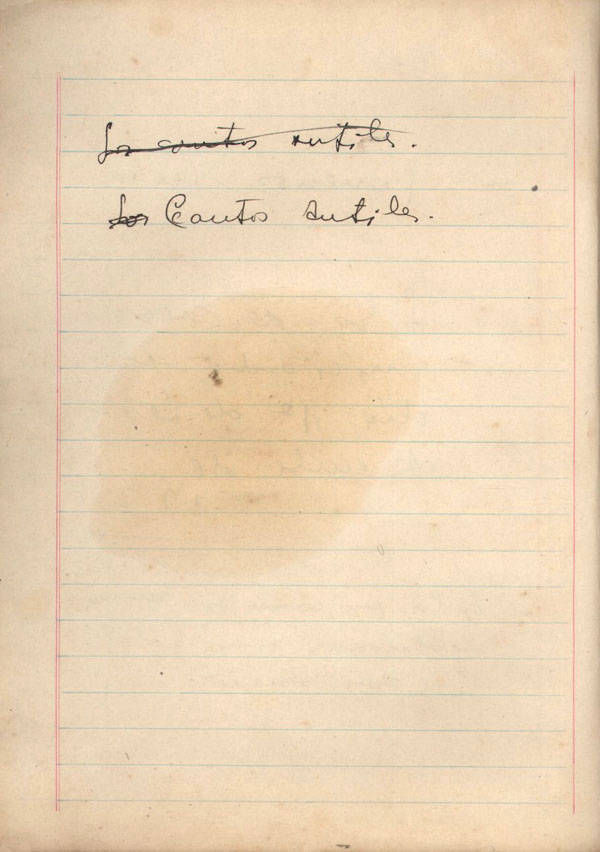 Los cantos sutiles.
Los Cantos sutiles.